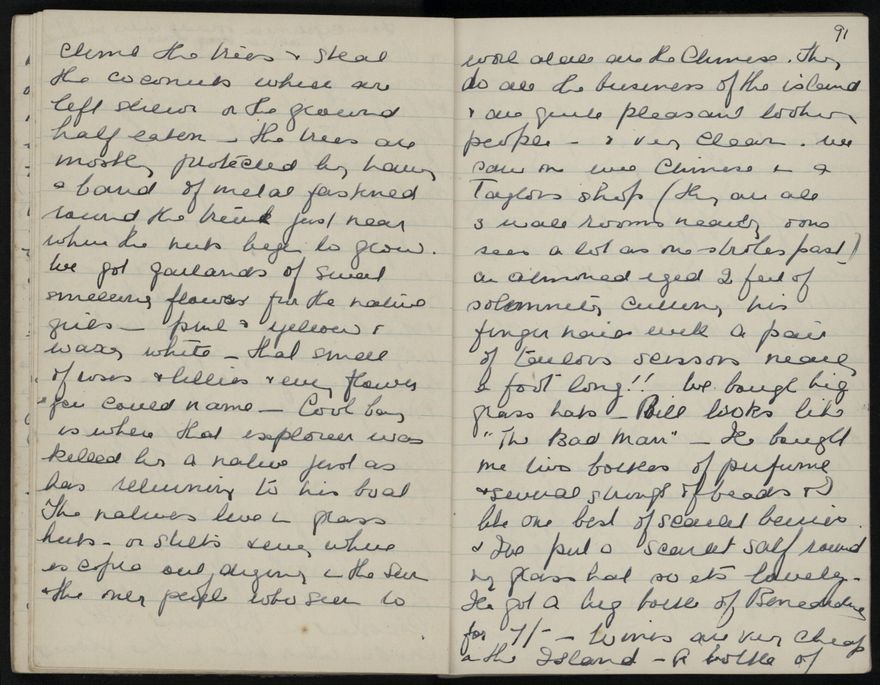 climb the trees & steal
the coconuts which are
left strewn on the ground
half eaten – the trees are
mostly protected by having
a band of metal fastened
round the trunk just near
where the nuts begin to grow.
We got garlands of sweet
smelling flowers from the native
girls – pink & yellow &
waxy white – that smell
of roses & lillies & every flower
you could name – Cook bay
is where that explorer was
killed by a native just as
he was returning to his boat
The natives live in grass
huts – on stilts & every where
is copra out drying in the sun
& the only people who seem to
91
work at all are the Chinese. They
do all the business of the island
& are quite pleasant looking
people – & very clean. We
saw one wee Chinese in a
Taylors shop (they are all
small rooms nearly, one
sees a lot as one strolls past)
an almoned eyed 2 feet of
solemnity cutting his
finger nails with a pair
of taylors scissors nearly
a foot long!! We bought big
grass hats – Bill looks like
"The Bad Man" – He bought
me two bottles of perfume
& several strings of beads & I
like one best of scarlet berries.
& I've put a scarlet scarf round
my grass hat so its lovely –
He got a big bottle of Benedictine
for 7/- – Wines are very cheap
in the Island – A bottle of